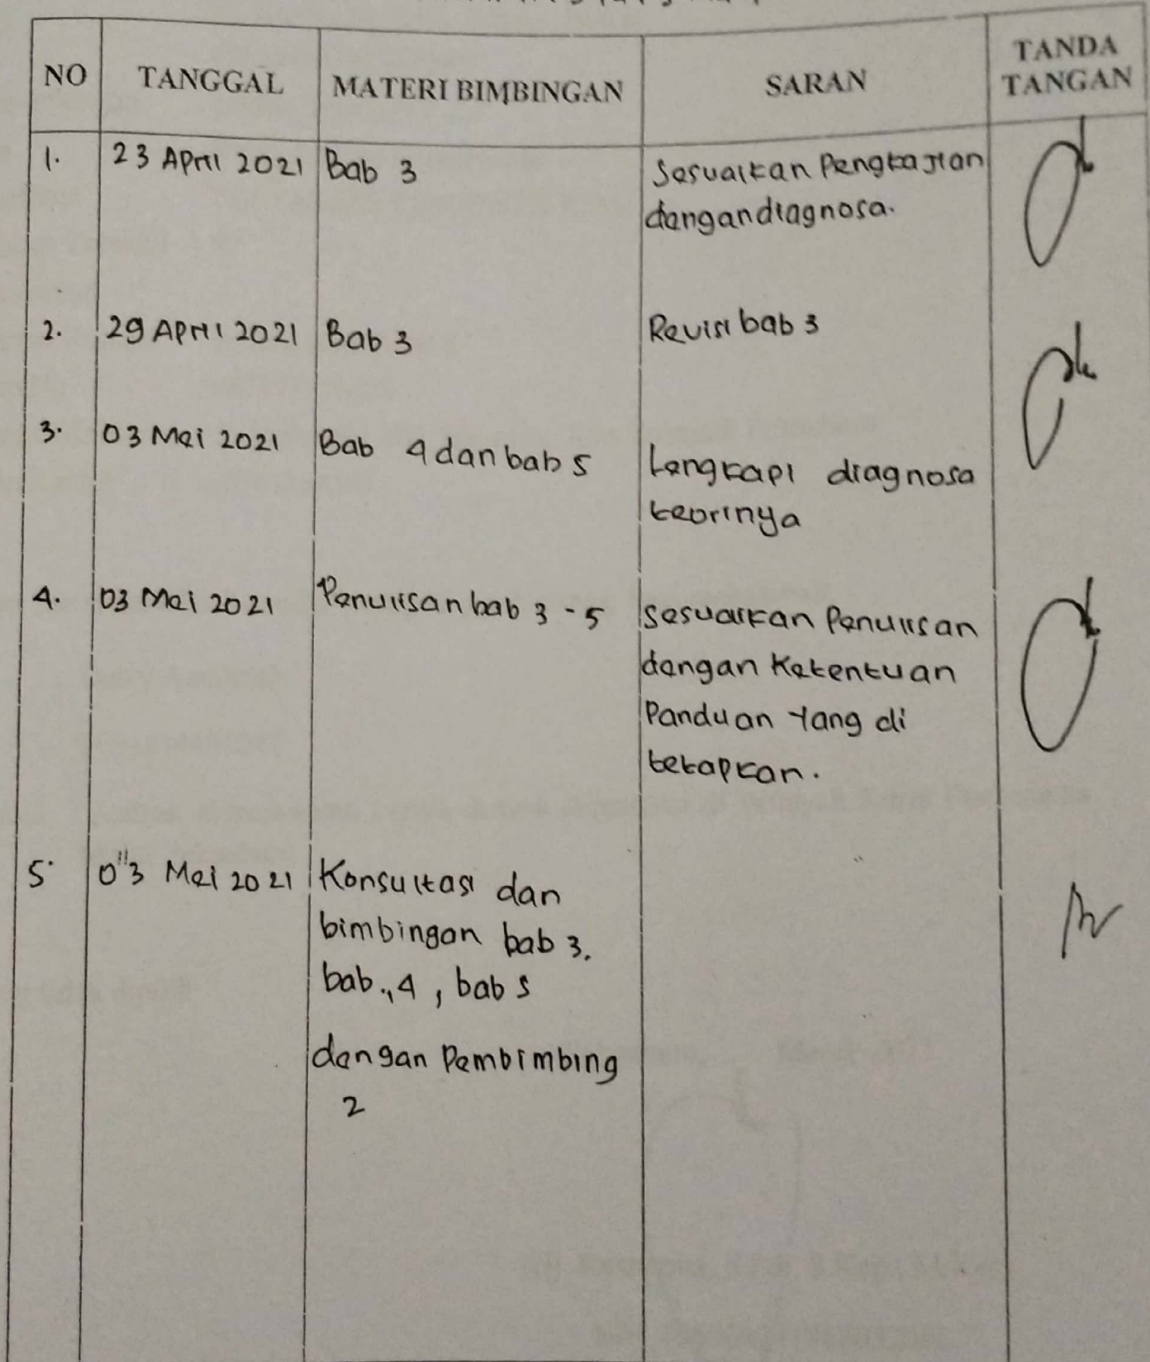 NO TANGGAL MATERI BIMBINGAN SARAN TANDA TANGAN
1. 23 April 2021 Bab 3 Sesuaikan Pengkajian
dengandiagnosa.
2. 29 April 2021 Bab 3 Revisi bab 3
3. 03 Mei 2021 Bab 4 dan bab 5 Lengkapi diagnosa
teorinya
4. 03 Mei 2021 Penulisan bab 3 - 5 Sesuaikan Penulisan
dengan Ketentuan
Panduan Yang di
tetapkan.
5. 03 Mei 2021 Konsultasi dan
bimbingan bab 3.
bab., 4, bab 5
dengan Pembimbing
2